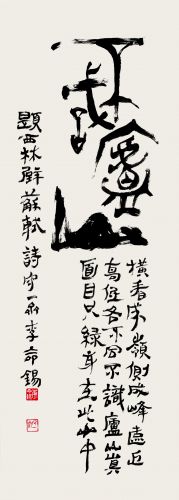 不識廬山
橫看成嶺側成峰遠近
高低各不同不識廬山真
面目只緣身在此山中
題西林壁蘇軾詩守一李錫